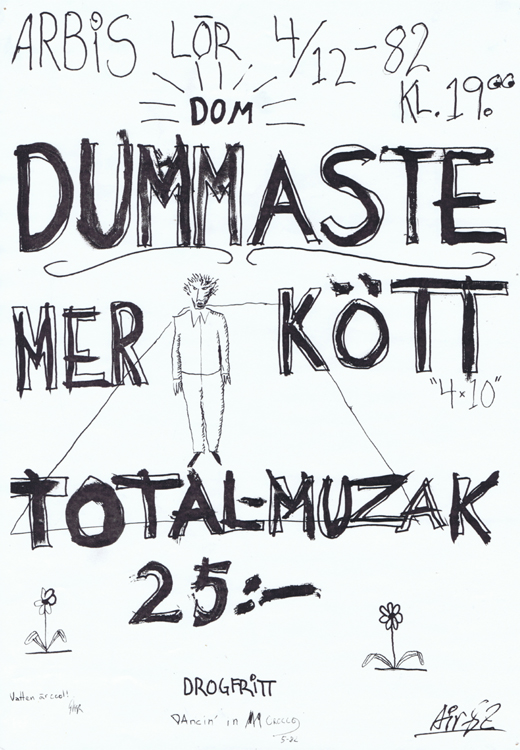 ARBiS LÖR 4/12-82
KL. 19.00
DOM
DUMMASTE
MER KÖTT
"4×10"
TOTAL-MUZAK
25:-
DROGFRITT
Vatten är coolt!
DAncin' in
5-82